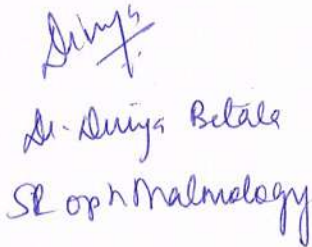 Divya
Dr. Divya Betala
SR ophthalmology